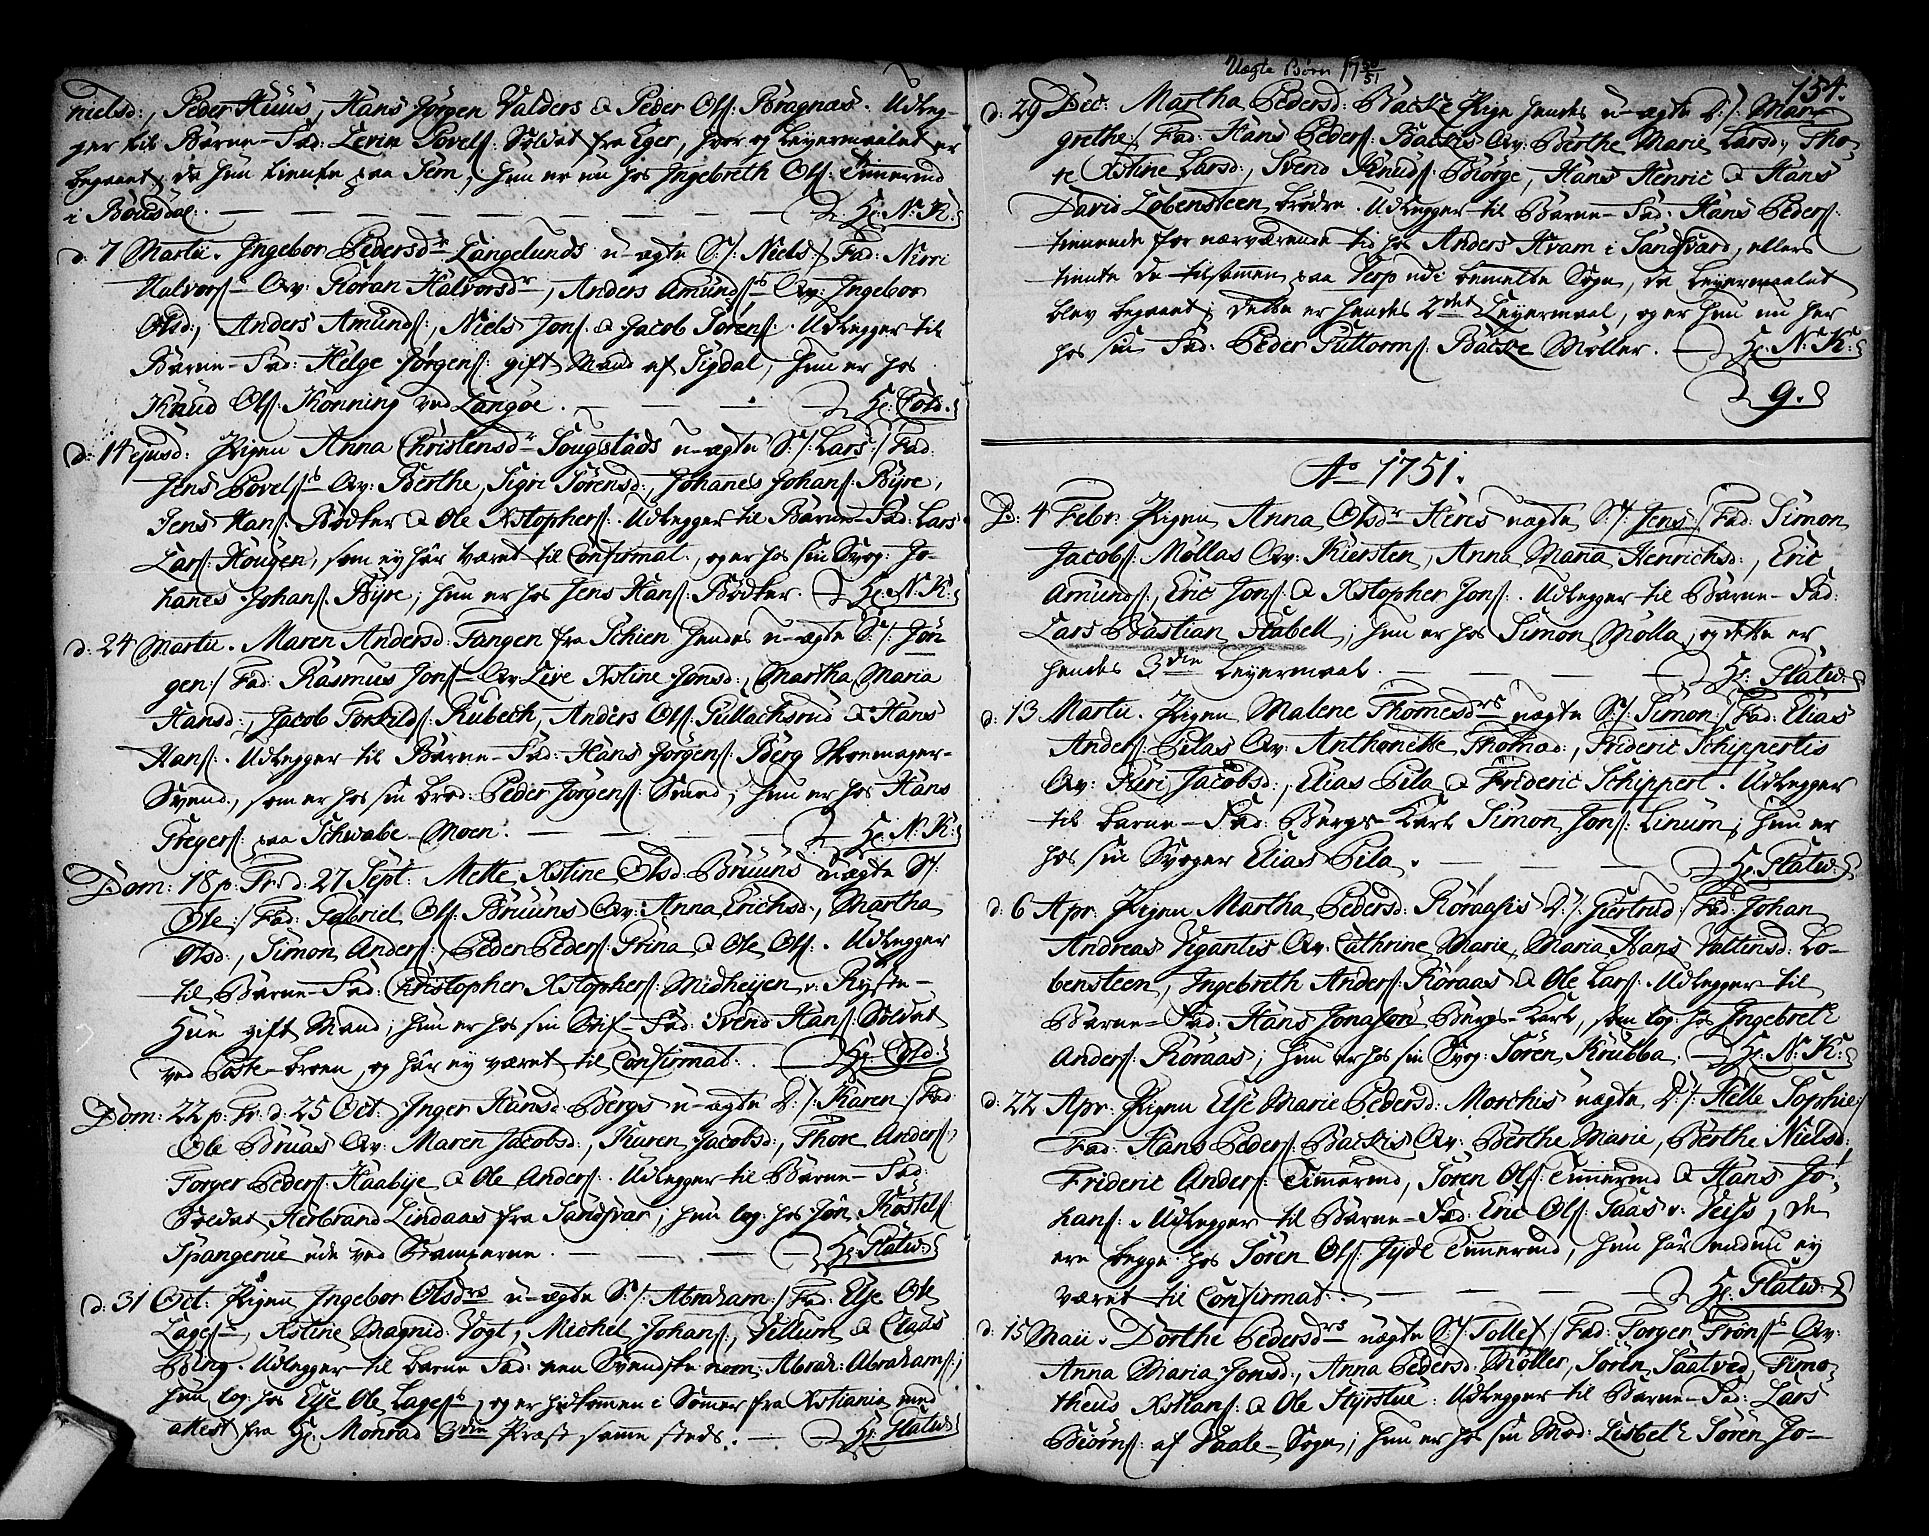 Nielsd:, Peder Huus, Hans Jørgen Valders & Peder Olſ: Bragnæs. Udleg-
ger til Barne-Fad: Levin Povelſ: Soldat fra Eger, hvor og Leyermaalet er
begaaet, da hun tiente paa Sem, hun er nu hos Ingebreth Olſ: Timermd
i Bøusdal. Hr. N: K:
d. 7 Martii. Ingebor Pedersdr Langelunds u-ægte S:/: Niels:/ Fad: Niri
Halvorſ: Qv: Røran Halvorsdr, Anders Amundſs Qv: Ingebor
Olsd:, Anders Amundſ:, Niels Jonſ: & Jacob Sørenſ:. Udlegger til
Barne-Fad: Helge Jørgenſ: gift Mand af Sigdal, hun er hos
Knud Olſ: Thonning ved Langøe. Hr: Cold.
d. 14 ejusd: Pigen Anna Christensdr Sougstads u-ægte S:/: Lars:/ Fad:
Jens Povelſs Qv: Berthe, Sigri Sørensd:, Johanes Johanſ: Byre,
Jens Hanſ: Bødker & Ole Xstopherſ:. Udlegger til Barne-Fad: Lars
Larſ: Hougen, som ey har været til Confirmat:, og er hos sin Svog: Jo-
hanes Johanſ: Byre; hun er hos Jens Hanſ: Bødker. Hr: N: K:
d. 24 Martii. Maren Andersd: Fangen fra Schien hendes u-ægte S:/: Jør
gen:/ Fad: Rasmus Jonſ: Qv Live Xstine Jonsd:, Martha Maria
Hansd:, Jacob Torkildſ: Rubech, Anders Olſ: Gullachsrud & Hans
Hanſ:. Udlegger til Barne-Fad: Hans Jørgenſ: Berg Skoemager-
Svend, som er hos sin brod: Peder Jørgenſ: Smed; hun er hos Hans
Gregerſ: paa Schwabe-Moen. Hr: N: K:
Dom: 18 p. Tr: d: 27 Sept: Mette Xstine Olsd: Bruuns uægte S:/:
Ole:/ Fad: Gabriel Olſ: Bruuns Qv: Anna Erichsd:, Martha
Olsd:, Simon Anderſ:, Peder Pederſ: Trina & Ole Olſ:. Udlegger
til Barne-Fad: Christopher Xstopherſ: Midheyen v: Ryste-
Hue gift Mand; hun er hos sin Stif-Fad: Svend Hanſ: Soldat
ved Poste-broen, og har ey været til Confirmat:. Hr: Cold.
Dom: 22 p. Tr: d. 25 Oct: Inger Hansd: Bergs u-ægte D:/: Karen:/ Fad
Ole Bruas Qv: Maren Jacobsd:, Karen Jacobsd:, Thore Anderſ:
Torger Pederſ: Haabye & Ole Anderſ:. Udlegger til Barne-Fad:
Soldat Herbrand Lindaas fra Sandsvær; hun log: hos Jøn Thostelſ
Spangerue ude ved Stamperne. Hr: Flatw:
d: 31 Oct: Pigen Ingebor Olsdrs u-ægte S:/: Abraham:/ Fad: Else Ole
Lageſ:, Xstine Magnid: Vogt, Michel Johanſ:, Villum & Claus
Bing. Udlegger til barne Fad: een Svendske nom: Abrah: Abrahamſ:,
hun log: hos Else Ole Lageſs, og er hidkomen i Somer fra Xstiania med
attest fra Hr: Monrad 3die Præst samme steds. Hr: Flatw:
Uægte Børn 1750/51
154.
d. 29 Dec: Martha Pedersd: Backe Pige hendes u-ægte D:/: Mar-
grethe:/ Fad: Hans Pederſ: Backis Qv: Berthe Marie Larsd:, Tho-
re Xstine Larsd:, Svend Knudſ: Biørge, Hans Henric & Hans
David Lobensteen brødre. Udlegger til Barne-Fad: Hans Pederſ:
tienende for nærværende tid hos Anders Hvam i Sandsværd, ellers
tiente de tilsamen paa Verp udi bemelte Sogn, da Leyermaalet
blev begaaet; dette er hendes 2det Leyermaal, og er hun nu her
hos sin Fad: Peder Guttormſ: Backe Møller. Hr: N: K:
9.
Ao 1751.
D: 4 Febr: Pigen Anna Olsdr Heres uægte S:/: Jens:/ Fad: Simon
Jacobſ: Møllas Qv: Kiersten, Anna Maria Henrichsd:, Eric
Amundſ:, Eric Jonſ: & Xstopher Jonſ:. Udlegger til Barne-Fad:
Lars Bastian Stabell; hun er hos Simon Mølla, og dette er
hendes 3die Leyermaal. Hr: Flatw:
d: 13 Martii. Pigen Malene Thomesdrs uægte S:/: Simon:/ Fad: Elias
Anderſ: Pilas Qv: Anthonette Thomæd:, Frideric Schippertis
Qv: Guri Jacobsd:, Elias Pila & Frideric Schippert. Udlegger
til barne-Fad: Bergs-Karl Simon Jonſ: Linum; hun er
hos sin Svoger Elias Pila. Hr: Flatw:
d: 6 Apr: Pigen Martha Pedersd: Røraasis D:/: Giertrud:/ Fad: Johan
Andreas Vigantis Qv: Cathrine Marie, Maria Hans Valtinsd: Lo-
bensteen, Ingebreth Anderſ: Røraas & Ole Larſ:. Udlegger til
Barne-Fad: Hans Jonasøn Bergs-Karl, som log: hos Ingebreth
Anderſ: Røraas; hun er hos sin Svog: Søren Krubba. Hr: N: K:
d: 22 Apr: Pigen Else Marie Pedersd: Morchis uægte D:/: Helle Sophie:/
Fad: Hans Pederſ: Backis Qv: Berthe Marie, Berthe Nielsd:
Frideric Anderſ: Timermd, Søren Olſ: Timermd & Hans Jo-
hanſ:. Udlegger til Barne-Fad: Eric Olſ: Saas v: Veiss, de
ere begge hos Søren Olſ: Jyde Timermd, hun har endnu ey
været til Confirmat:. Hr: Flatw:
d: 15 Maii. Dorthe Pedersdrs uægte S:/: Tollef:/ Fad: Torger Trønſs Qv:
Anna Maria Jonsd:, Anna Pedersd: Møller, Søren Saatved, Timo-
theus Xstianſ: & Ole Styrstue. Udlegger til Barne-Fad: Lars
Biørnſ: af Vaale-Sogn; hun er hos sin Mod: Lisbeth Søren Jo-